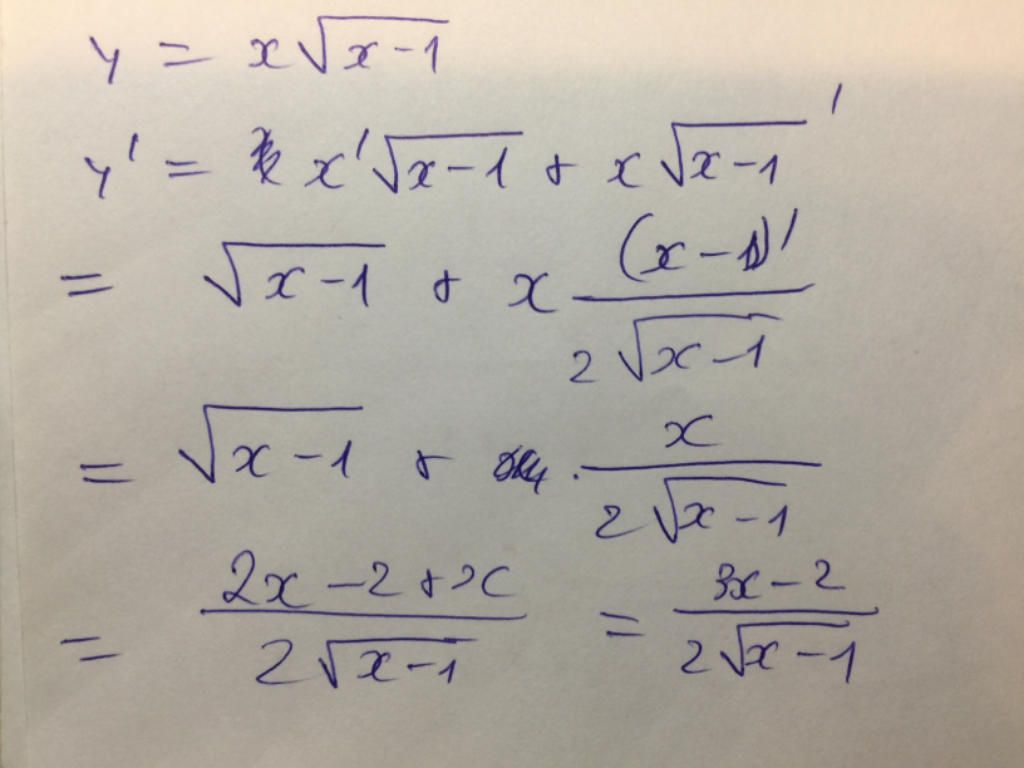 y = x√(x-1)
y' = x'√(x-1) + x√(x-1)'
= √(x-1) + x (x-1)' / 2√(x-1)
= √(x-1) + . x / 2√(x-1)
= 2x-2+x / 2√(x-1) = 3x-2 / 2√(x-1)